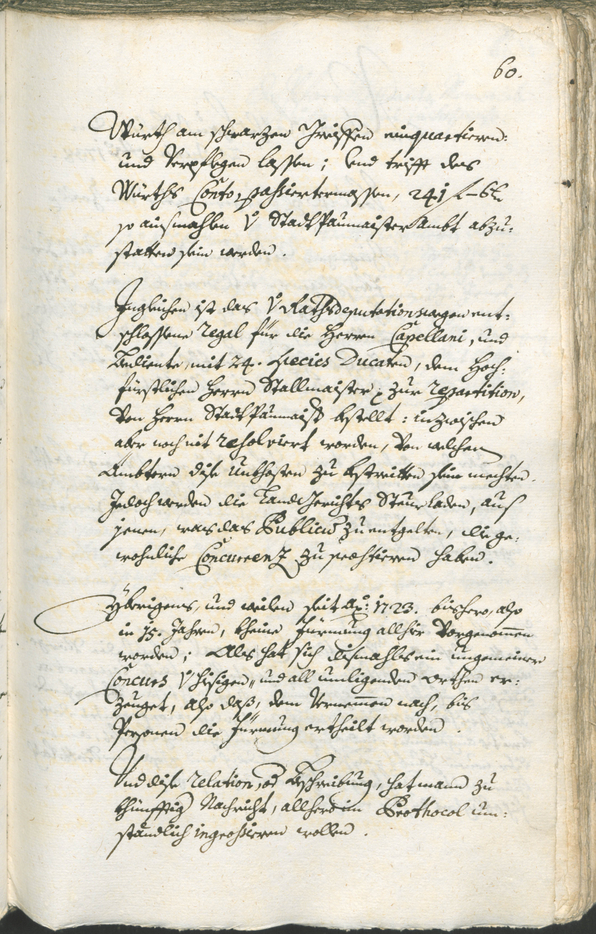 60.
Würth am schwarzen Greiffen einquartieren:
und Verpflegen lassen; und trifft des
Würths Conto, passiertermassen, 241 f
so ausmahlen V StadtPaumaisterAmbt abzu:
statten sein werden.
Ingleichen ist das V Rathsdeputationswegen ent:
schlossene regal für die Herrn Capellani, und
Bediente, mit 24. Species Ducaten, dem Hoch:
fürstlichen Herrn Stallmaister, zur repartition,
von Herrn StadtPaumaist bestellt: inzwischen
aber noch nit resolviert worden, Von welchen
Ambtern dise Unkhosten zu bestreitten sein mechten.
Jedoch werden die LandtGerichts Steurladen, auf
jenen, was das Publicum zu entgelten, die ge:
wohnliche Concurrenz zu praestieren haben.
Yberigens, und weilen seit Ao: 1723. bishero, also
in 15. Jahren, kheine Fürmung allhie Vorgenommen
worden; Als hat sich dismahls ein ungemeiner
Concurs V hisigen, und all umligenden Orthen er:
zeuget, also daß, dem Vernemmen nach, bis
Personen die Fürmung ertheilt worden.
Und dise relation, od Beschreibung, hat mann zu
khünfftig Nachricht, allhero in Prothocol um:
ständlich ingrossieren wollen.